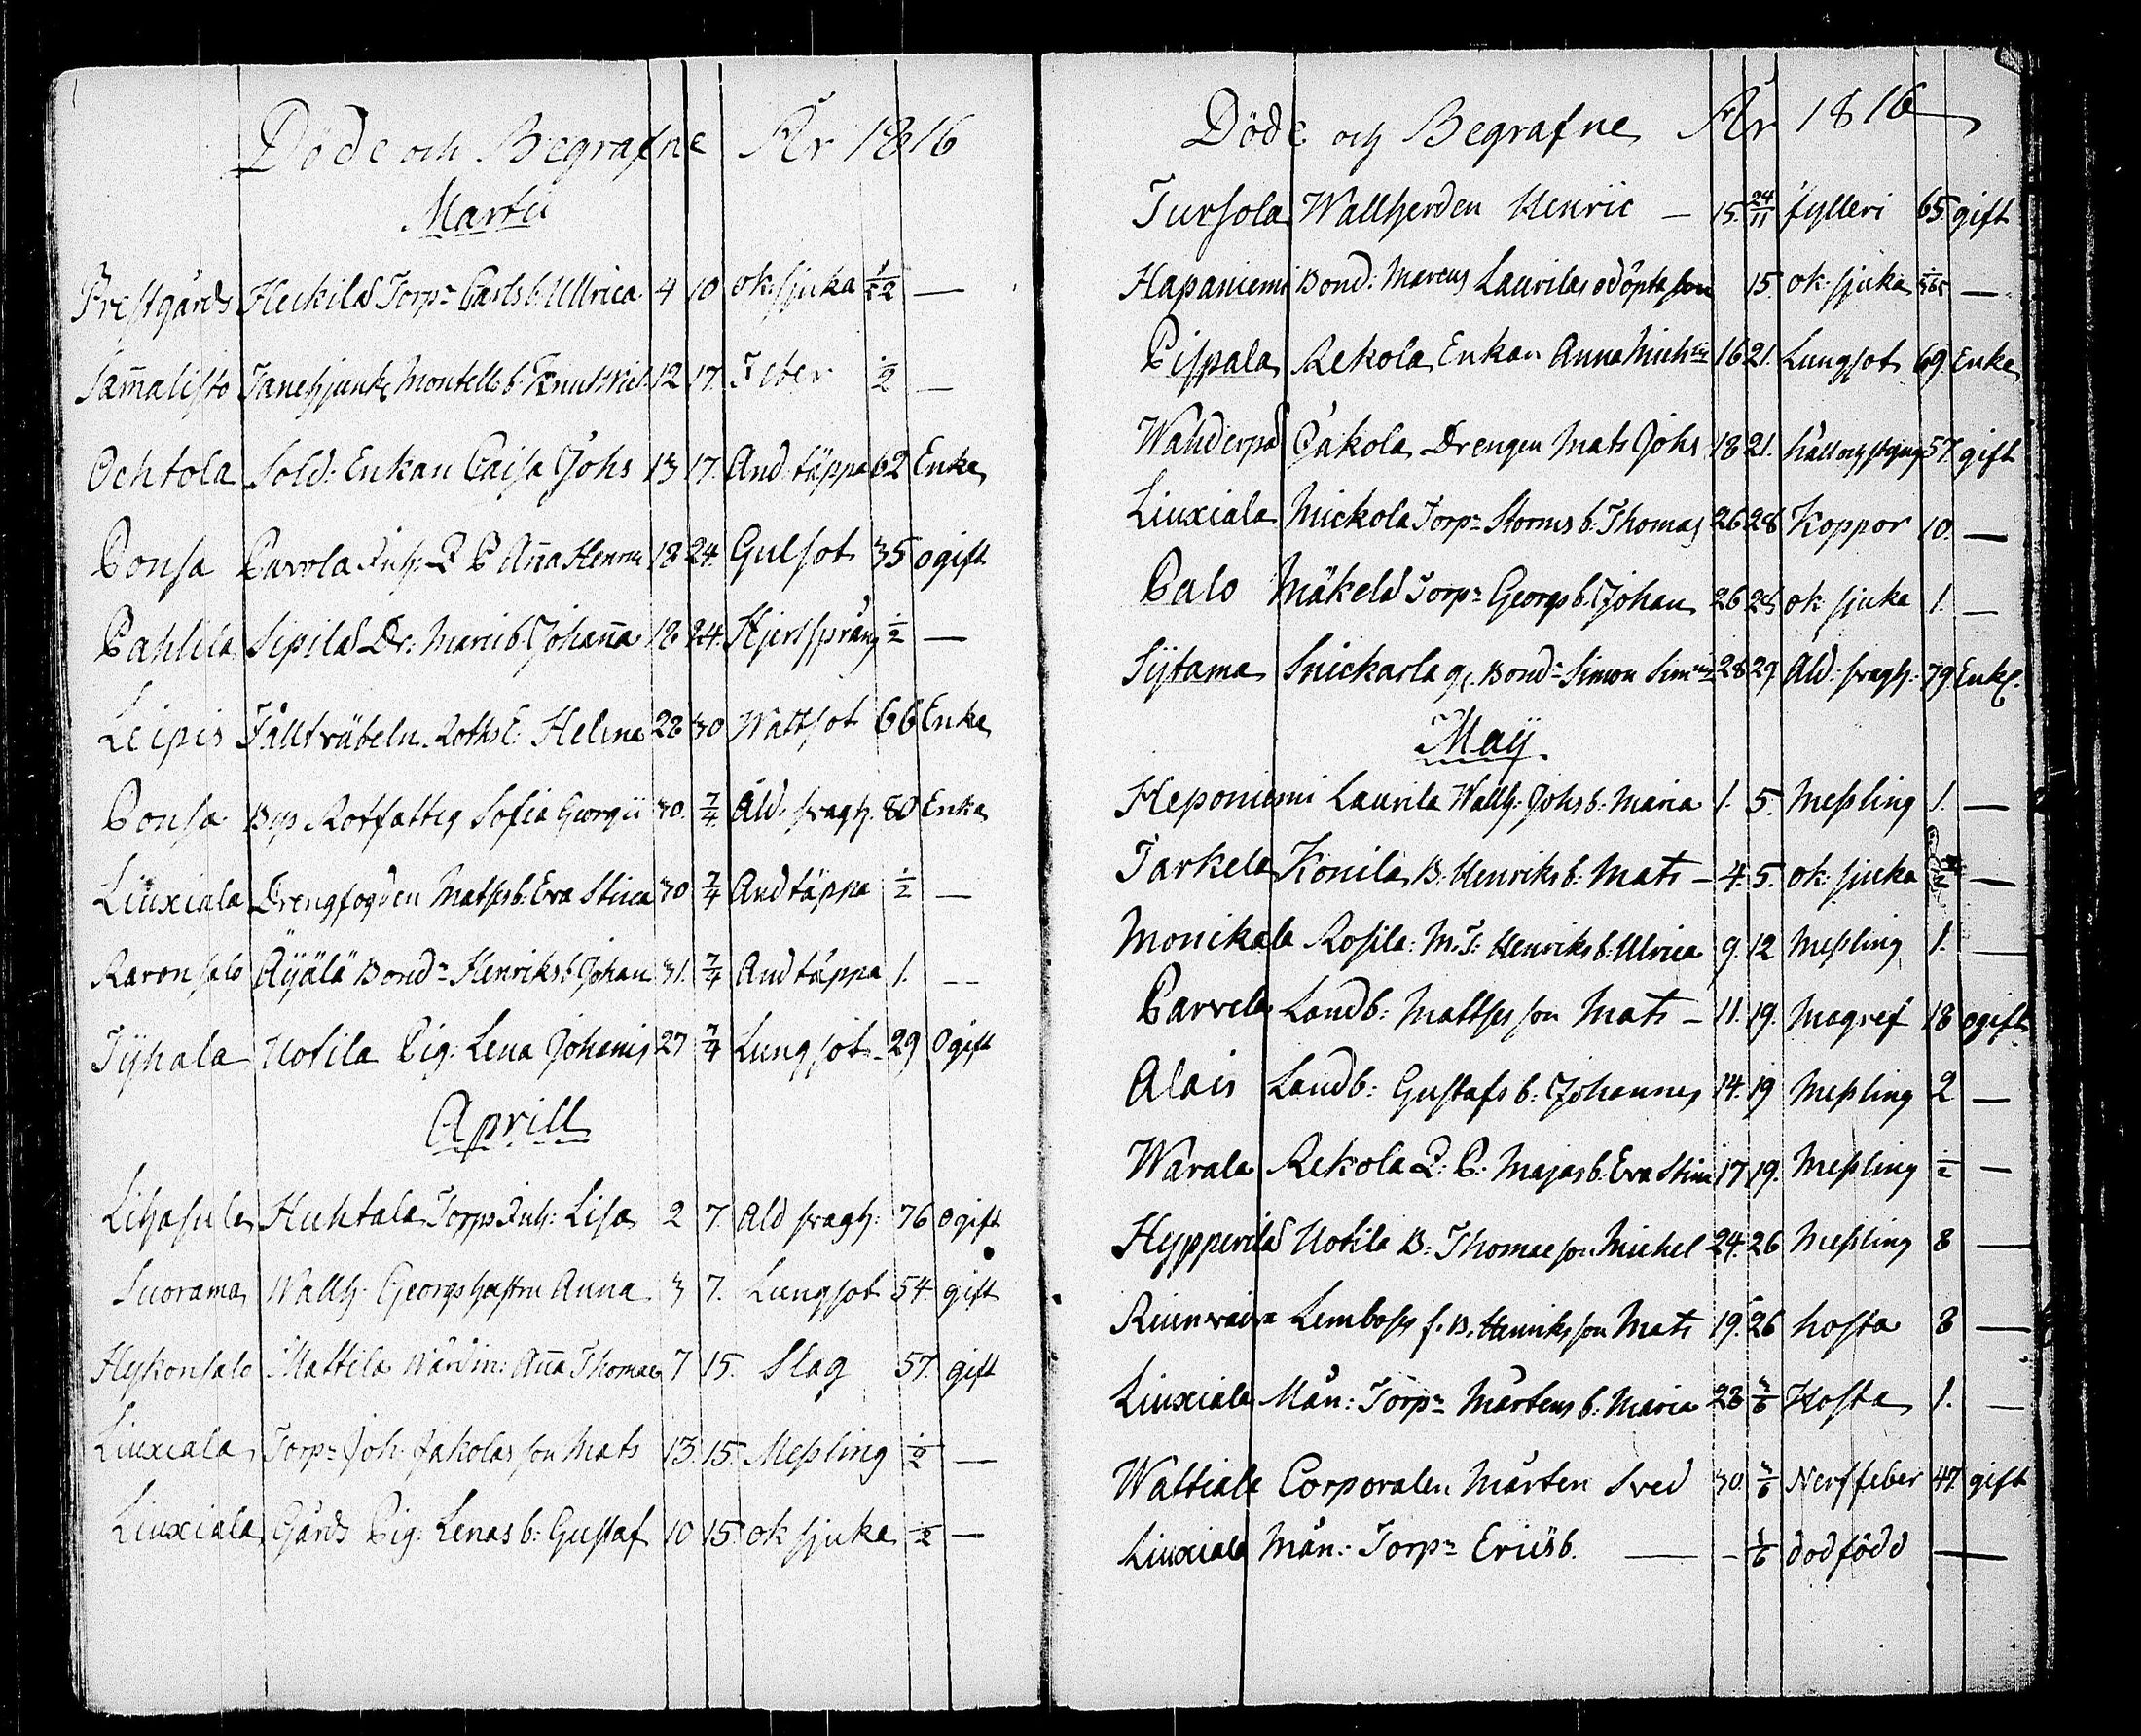 Döde och Begrafne År 1816
Martii
Prestgårds Heckilä Torp= Carls b. Ullrica 4 10 ok: sjuka 1/52 —
Sam̄alisto Fanehjunk: Montells b. Knut 12 17. Feber ½ —
Ochtola Sold: Enkan Caisa Johs 13 17. Andtäppa 62 Enka
Ponsa Pavola Inh: Q P An̄a Henrici 18 24. Gulsot 35 ogift
Pahlila Sipilä Dr: Marci b. Johan̄a 18 24. Hjertsprång ½ —
Leipis Fältväbeln Roths E: Helena 28 30 Wattsot 66 Enka
Ponsa Bys Rotfattig Sofia Georgii 30. 7/4. Åld: svagh. 80 Enka
Liuxiala Drengfogden Matts b: Eva Stina 30 7/4 Andtäppa ½ —
Raronsalo Äijälä Bond= Henriks b. Johan 31. 7/4 Andtäppa 1. —
Tyhala Uotila Pig: Lena Johanis 27 7/4 Lungsot 29 Ogift
Aprill
Lihasula Huhtala Torps Inh: Lisa 2 7. Åld svagh: 76 ogift
Suorama Wallh. Georgs hustru Anna 3 7. Lungsot 54. gift
Hykonsalo Mattila Wärdin: An̄a Thomae 7 15. Slag 57. gift
Liuxiala Torp= Joh: Jakolas son Mats 13. 15. Messling ½ —
Liuxiala Gårds Pig: Lenas b: Gustaf 10 15. ok sjuka ½ —
Döde och Begrafne År 1816
Tursola Wallherden Henric — 15. 24/11 fylleri 65. gift
Hapaniemi Bond: Marcus Laurilas odöpta son 15. ok: sjuka —
Pispala Rekola Enkan Anna Mich 16 21. Lungsot 69. Enka
Wahderpä Jakola Drengen Mats Johs 18 21. håll och styng 57. gift
Liuxiala Mickola Torp= Storms b. Thomas 26 28 Koppor 10. —
Palo Mäkelä Torp= Georgs b. Johan 26 28 ok sjuka 1. —
Sytama Snickarla g. Bond= Simon Sim 28 29 Åld: svagh: 79. Enkl.
Maij
Heponiemi Laurila Wallh: Johs b: Maria 1. 5. Messling 1. —
Tarkela Konila B: Henriks b: Mats — 4. 5. ok: sjuka —
Monikala Rosila: M. T: Henriks b: Ulrica 9. 12 Messling 1. —
Parvela Landb: Mattses son Mats — 11. 19. Magref 18 ogift
Alais Landb: Gustafs b: Johannes 14. 19 Messling 2 —
Warala Rekola Q: P: Majas b: Eva Stina 17 19. Messling ½ —
Hypperilä Uotila B: Thomae son Michel 24. 26 Messling 8 —
Riunvaiva Lemboss f. B. Henriks son Mats 19. 26 hosta 8 —
Liuxiala Mån: Torp= Mårtens b: Maria 28 3/6 Hosta 1. —
Wattiala Corporalen Mårten Sved 30. 3/6 Nerffeber 47. gift
Liuxiala Mån: Torp= Erics b. — — 3/6 dödfödd —